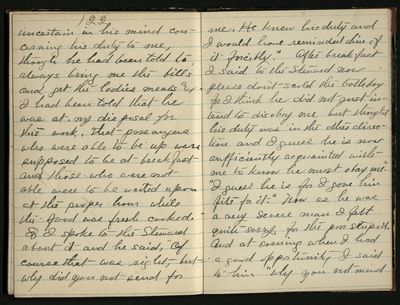 122
uncertain in his mind con-
cerning his duty to me,
though he had been told to
always bring me the bills
and get the ladies meals &
I had been told that he
was at my disposal for
this work, that passengers
who were able to be up were
supposed to be at breakfast
and those who were not
able were to be waited upon
at the proper hour while
the food was fresh cooked.
So I spoke to the Steward
about it and he said, "Of
course that was right, but
why did you not send for
me. He knew his duty and
I would have reminded him of
it forcibly." After breakfast
I said to the Steward now
please don't scold the bath boy
for I think he did not just in-
tend to disobey me but thought
his duty was in the other direc-
tion and I guess he is now
sufficiently acquainted with
me to know he must obey me."
"I guess he is for I gave him
fits for it." Now as he was
a very severe man I felt
quite sorry for the poor stupid.
And at evening when I had
a good opportunity I said
to him "why you not mind